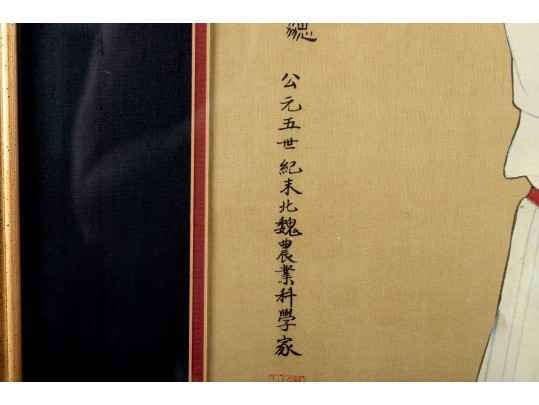 公元五世紀末北魏農業科學家